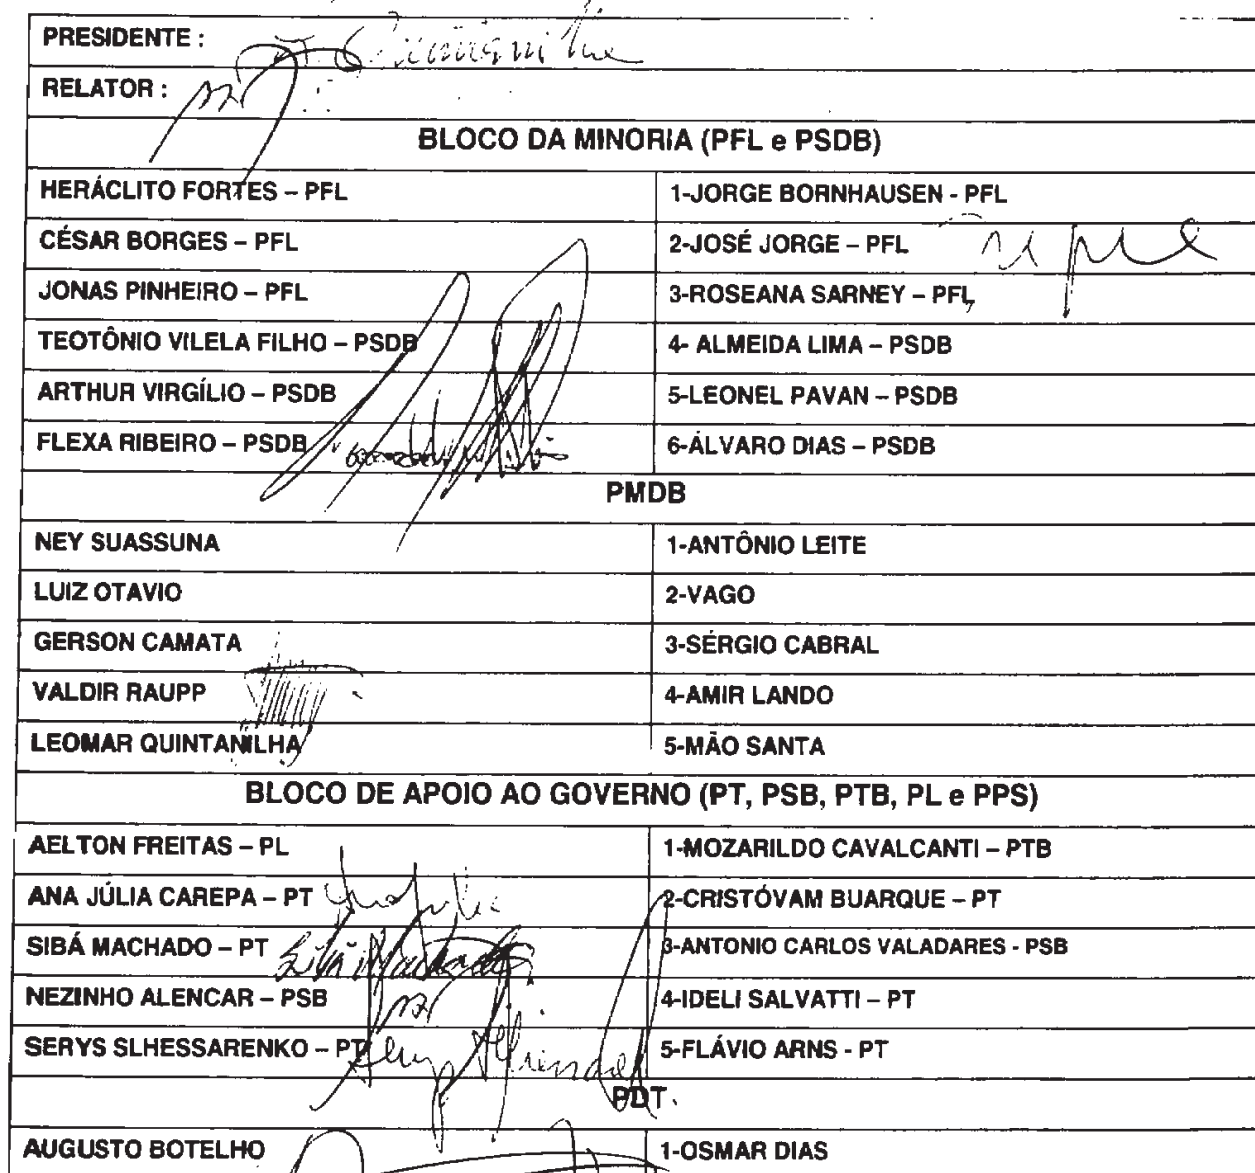 PRESIDENTE :
RELATOR :
BLOCO DA MINORIA (PFL e PSDB)
HERÁCLITO FORTES – PFL 1-JORGE BORNHAUSEN - PFL
CÉSAR BORGES – PFL 2-JOSÉ JORGE – PFL
JONAS PINHEIRO – PFL 3-ROSEANA SARNEY – PFL
TEOTÔNIO VILELA FILHO – PSDB 4- ALMEIDA LIMA – PSDB
ARTHUR VIRGÍLIO – PSDB 5-LEONEL PAVAN – PSDB
FLEXA RIBEIRO – PSDB 6-ÁLVARO DIAS – PSDB
PMDB
NEY SUASSUNA 1-ANTÔNIO LEITE
LUIZ OTAVIO 2-VAGO
GERSON CAMATA 3-SÉRGIO CABRAL
VALDIR RAUPP 4-AMIR LANDO
LEOMAR QUINTANILHA 5-MÃO SANTA
BLOCO DE APOIO AO GOVERNO (PT, PSB, PTB, PL e PPS)
AELTON FREITAS – PL 1-MOZARILDO CAVALCANTI – PTB
ANA JÚLIA CAREPA – PT 2-CRISTÓVAM BUARQUE – PT
SIBÁ MACHADO – PT Sibá Machado 3-ANTONIO CARLOS VALADARES - PSB
NEZINHO ALENCAR – PSB 4-IDELI SALVATTI – PT
SERYS SLHESSARENKO – PT 5-FLÁVIO ARNS - PT
PDT
AUGUSTO BOTELHO 1-OSMAR DIAS